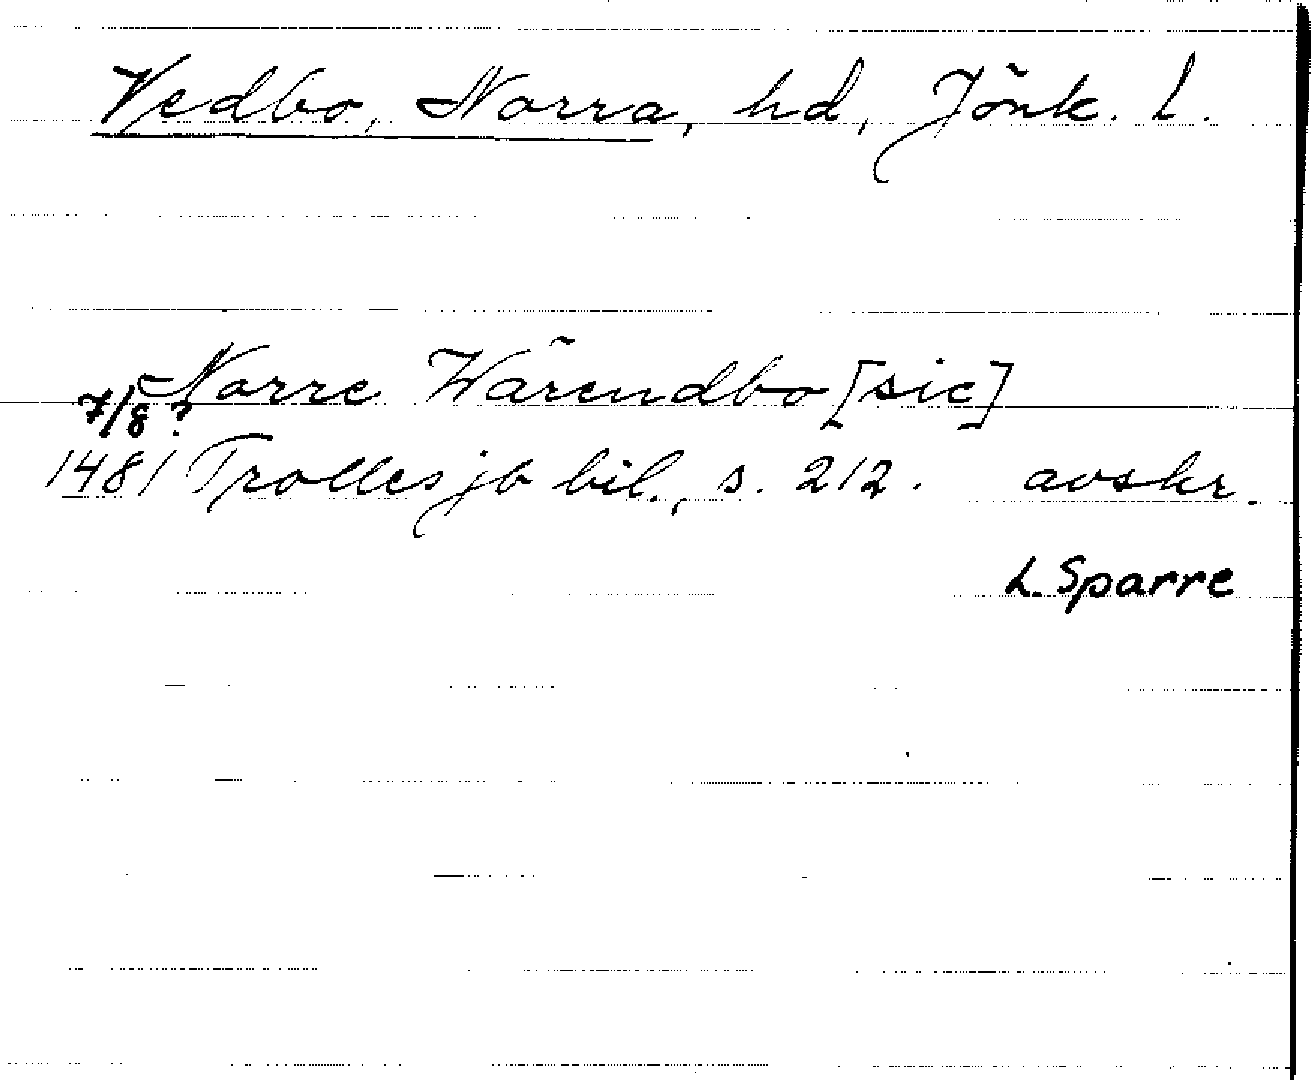 Vedbo, Norra, hd, Jönk. L.
Norre Wärendbo [sic]
7/8 ?
1481 Trolles jb bil., s. 212. avskr.
L. Sparre